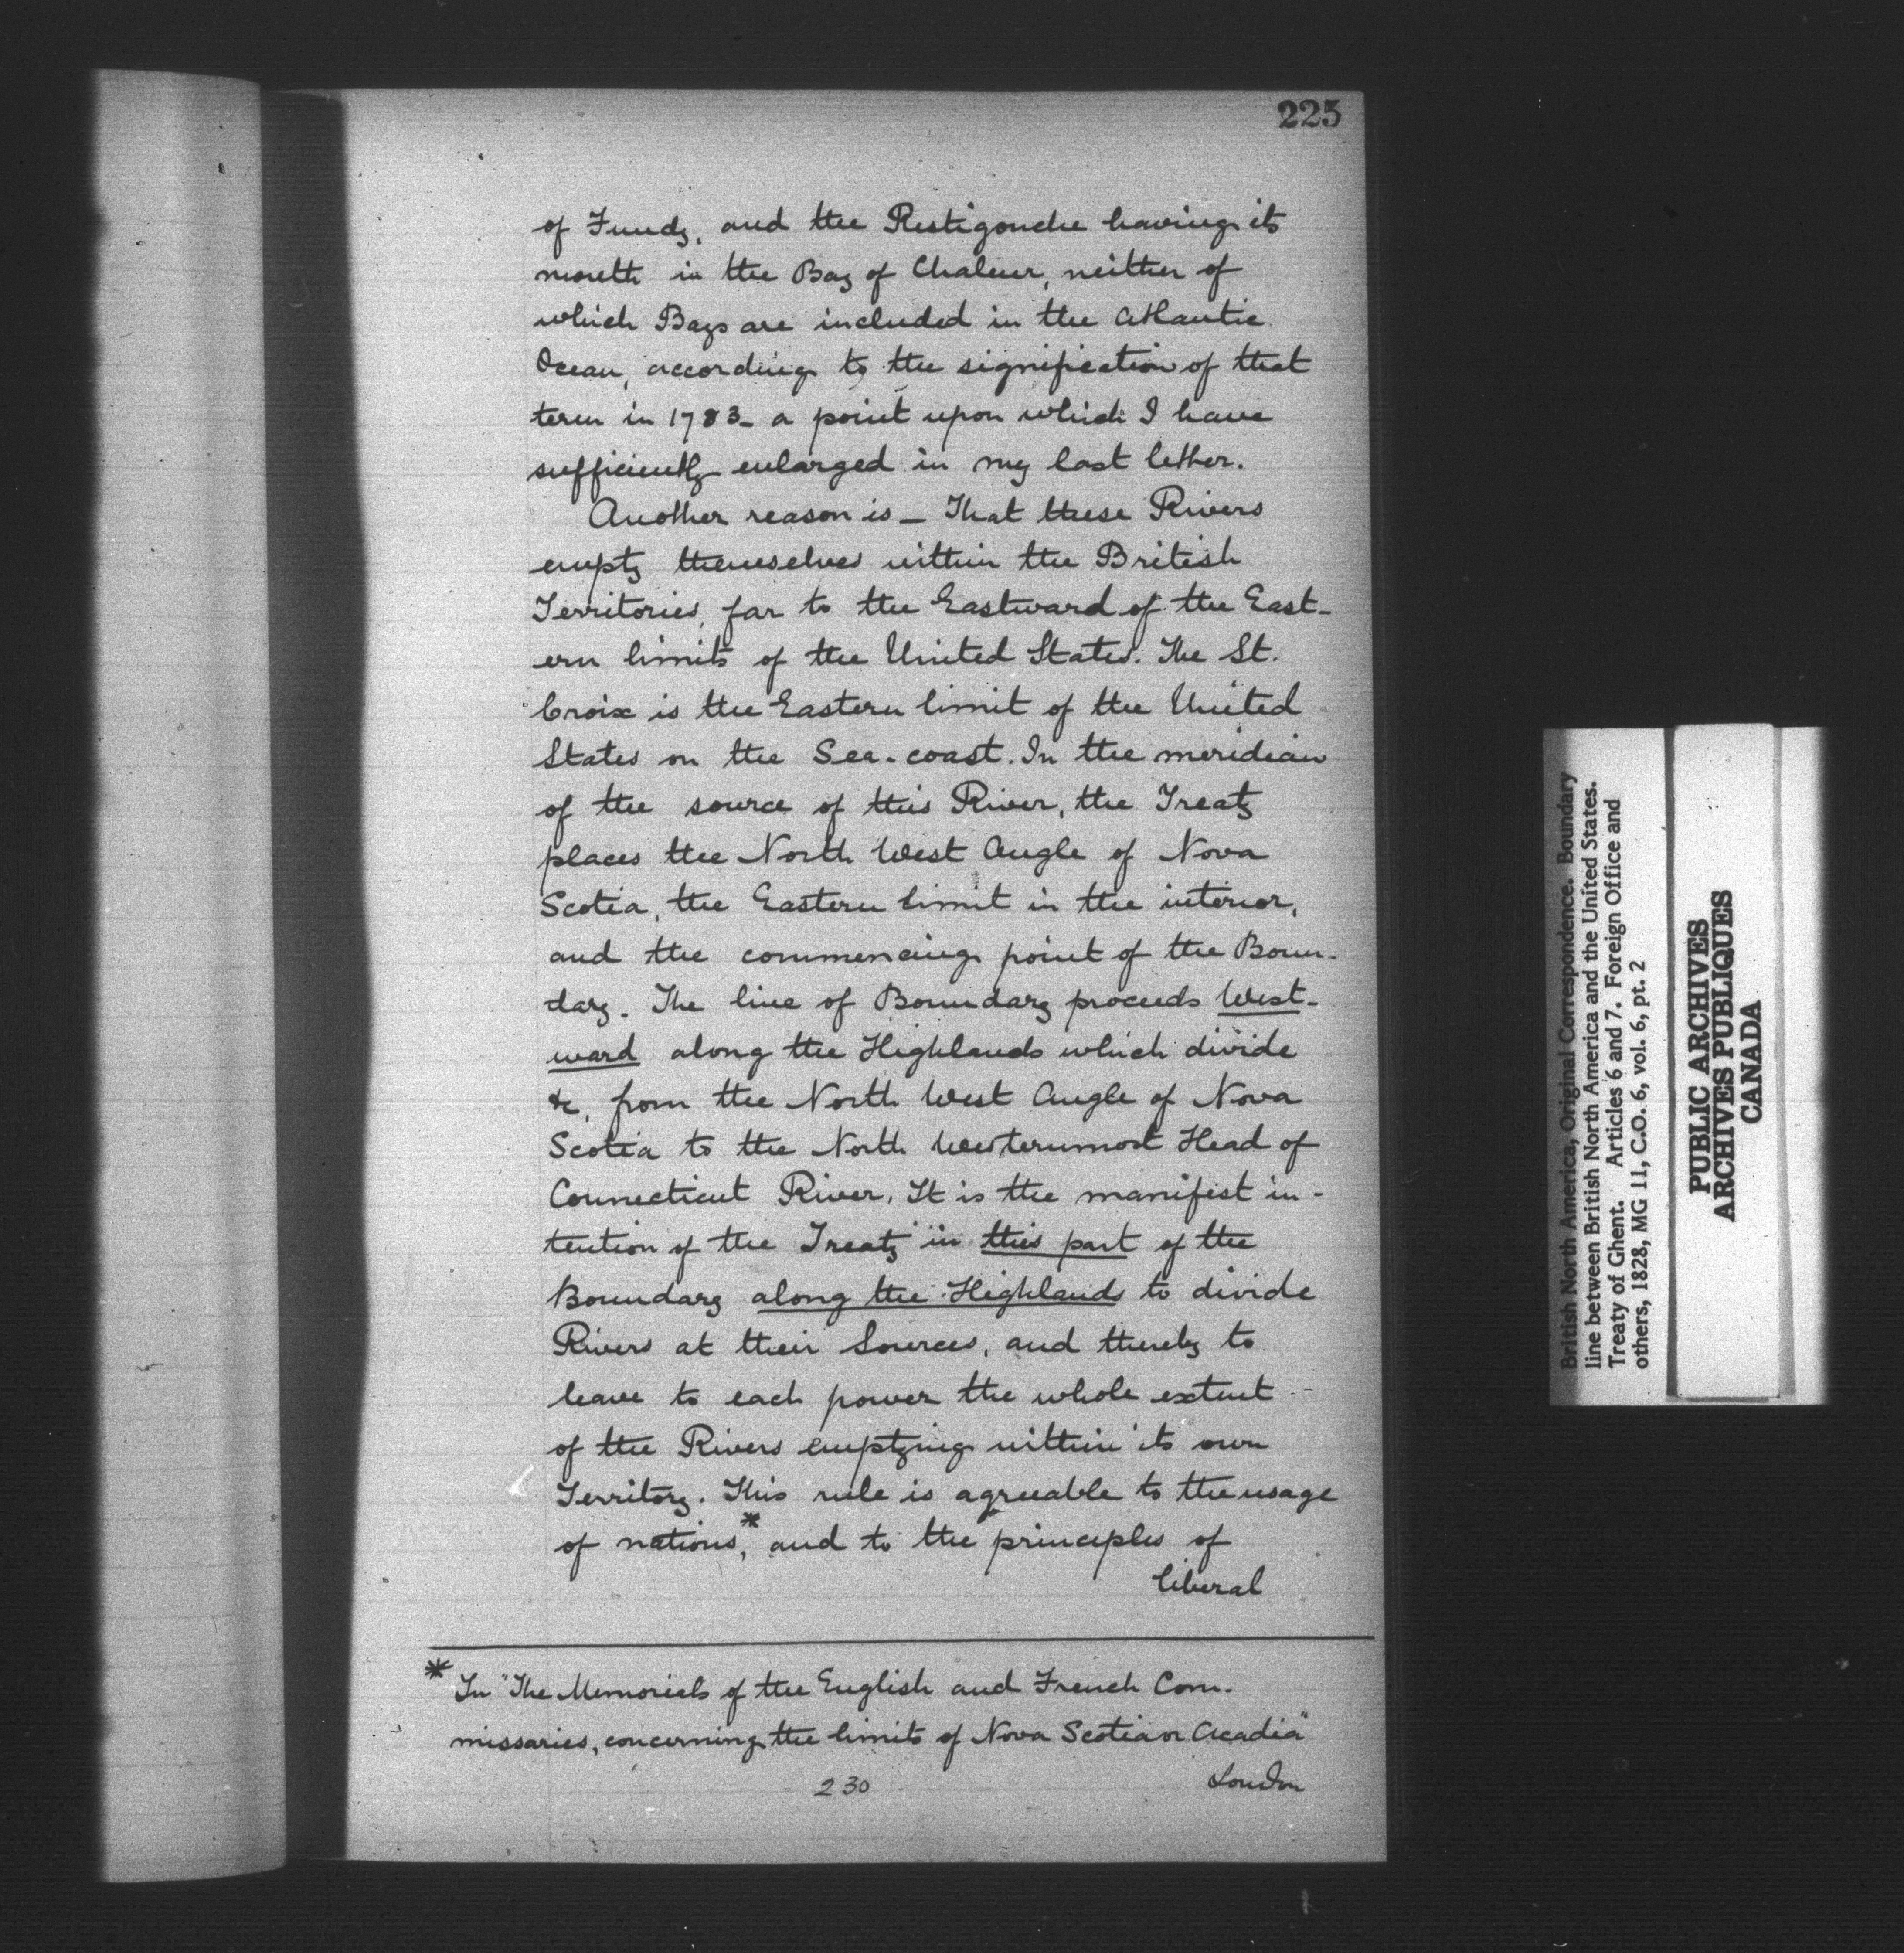 225
of Fundy, and the Restigouche having its
mouth in the Bay of Chaleur, neither of
which Bays are included in the Atlantic
Ocean, according to the signification of that
term in 1783_ a point upon which I have
sufficiently enlarged in my last letter.
Another reason is _ That these Rivers
empty themselves within the British
Territories, far to the Eastward of the East-
ern limits of the United States. The St.
Croix is the Eastern limit of the United
States on the Sea-coast. In the meridian
of the source of this River, the Treaty
places the North West Angle of Nova
Scotia, the Eastern limit in the interior,
and the commencing point of the Boun-
dary. The line of Boundary proceeds West-
ward along the Highlands which divide
&c, from the North West Angle of Nova
Scotia to the North Westernmost Head of
Connecticut River. It is the manifest in-
tention of the Treaty in this part of the
Boundary along the Highlands to divide
Rivers at their Sources, and thereby to
leave to each power the whole extent
of the Rivers emptying within its own
Territory. This rule is agreeable to the usage
of nations,* and to the principles of
liberal
* In "The Memorials of the English and French Com-
missaries, concerning the limits of Nova Scotia or Acadia"
London
230
British North America, Original Correspondence. Boundary
line between British North America and the United States.
Treaty of Ghent. Articles 6 and 7. Foreign Office and
others, 1828, MG 11, C.O. 6, vol. 6, pt. 2
PUBLIC ARCHIVES
ARCHIVES PUBLIQUES
CANADA